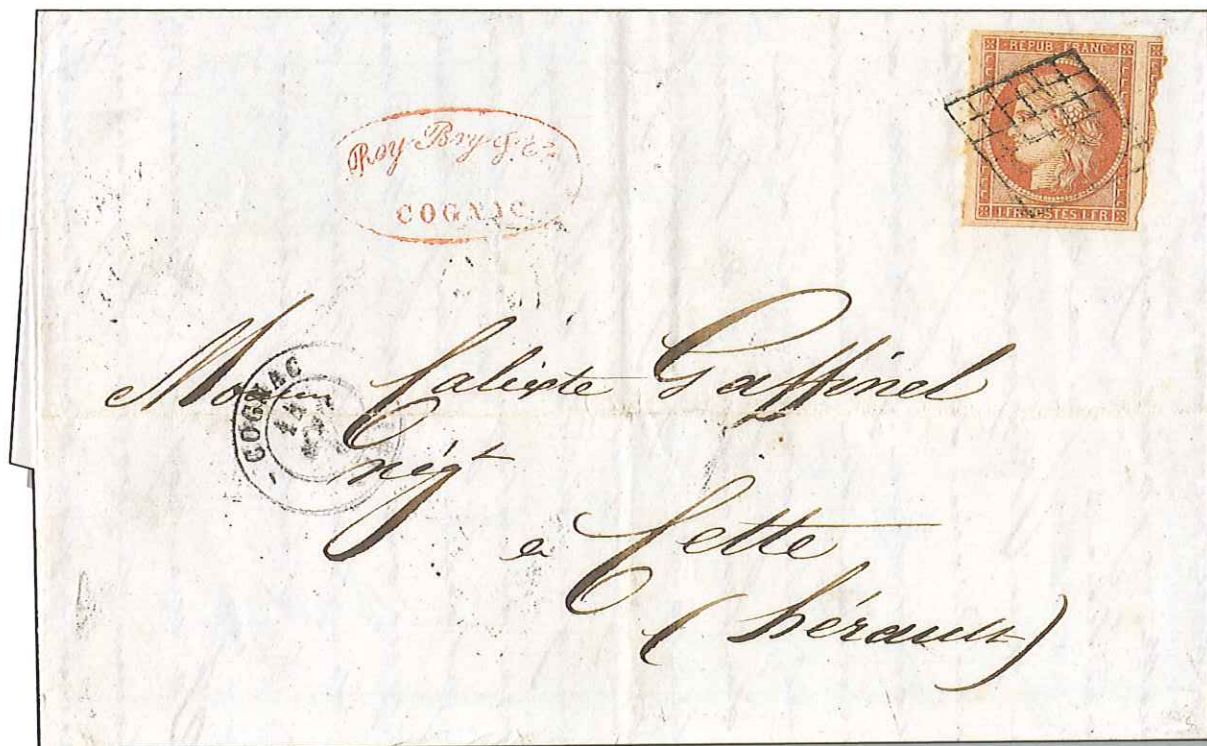 REPUB. FRANC.
1.FR.POSTES.1.FR
Roy Bry & Cie
COGNAC
COGNAC
Monsieur Calixte Gaffinel
négt
à Cette
(hérault)